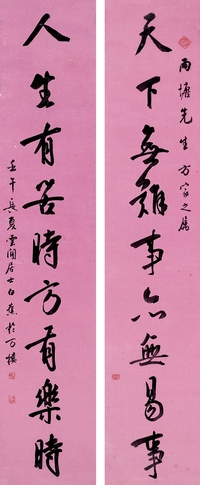 雨塘先生方家之屬
天下無難事亦無易事
人生有苦時方有樂時
壬午長夏雲間居士白蕉於万樓